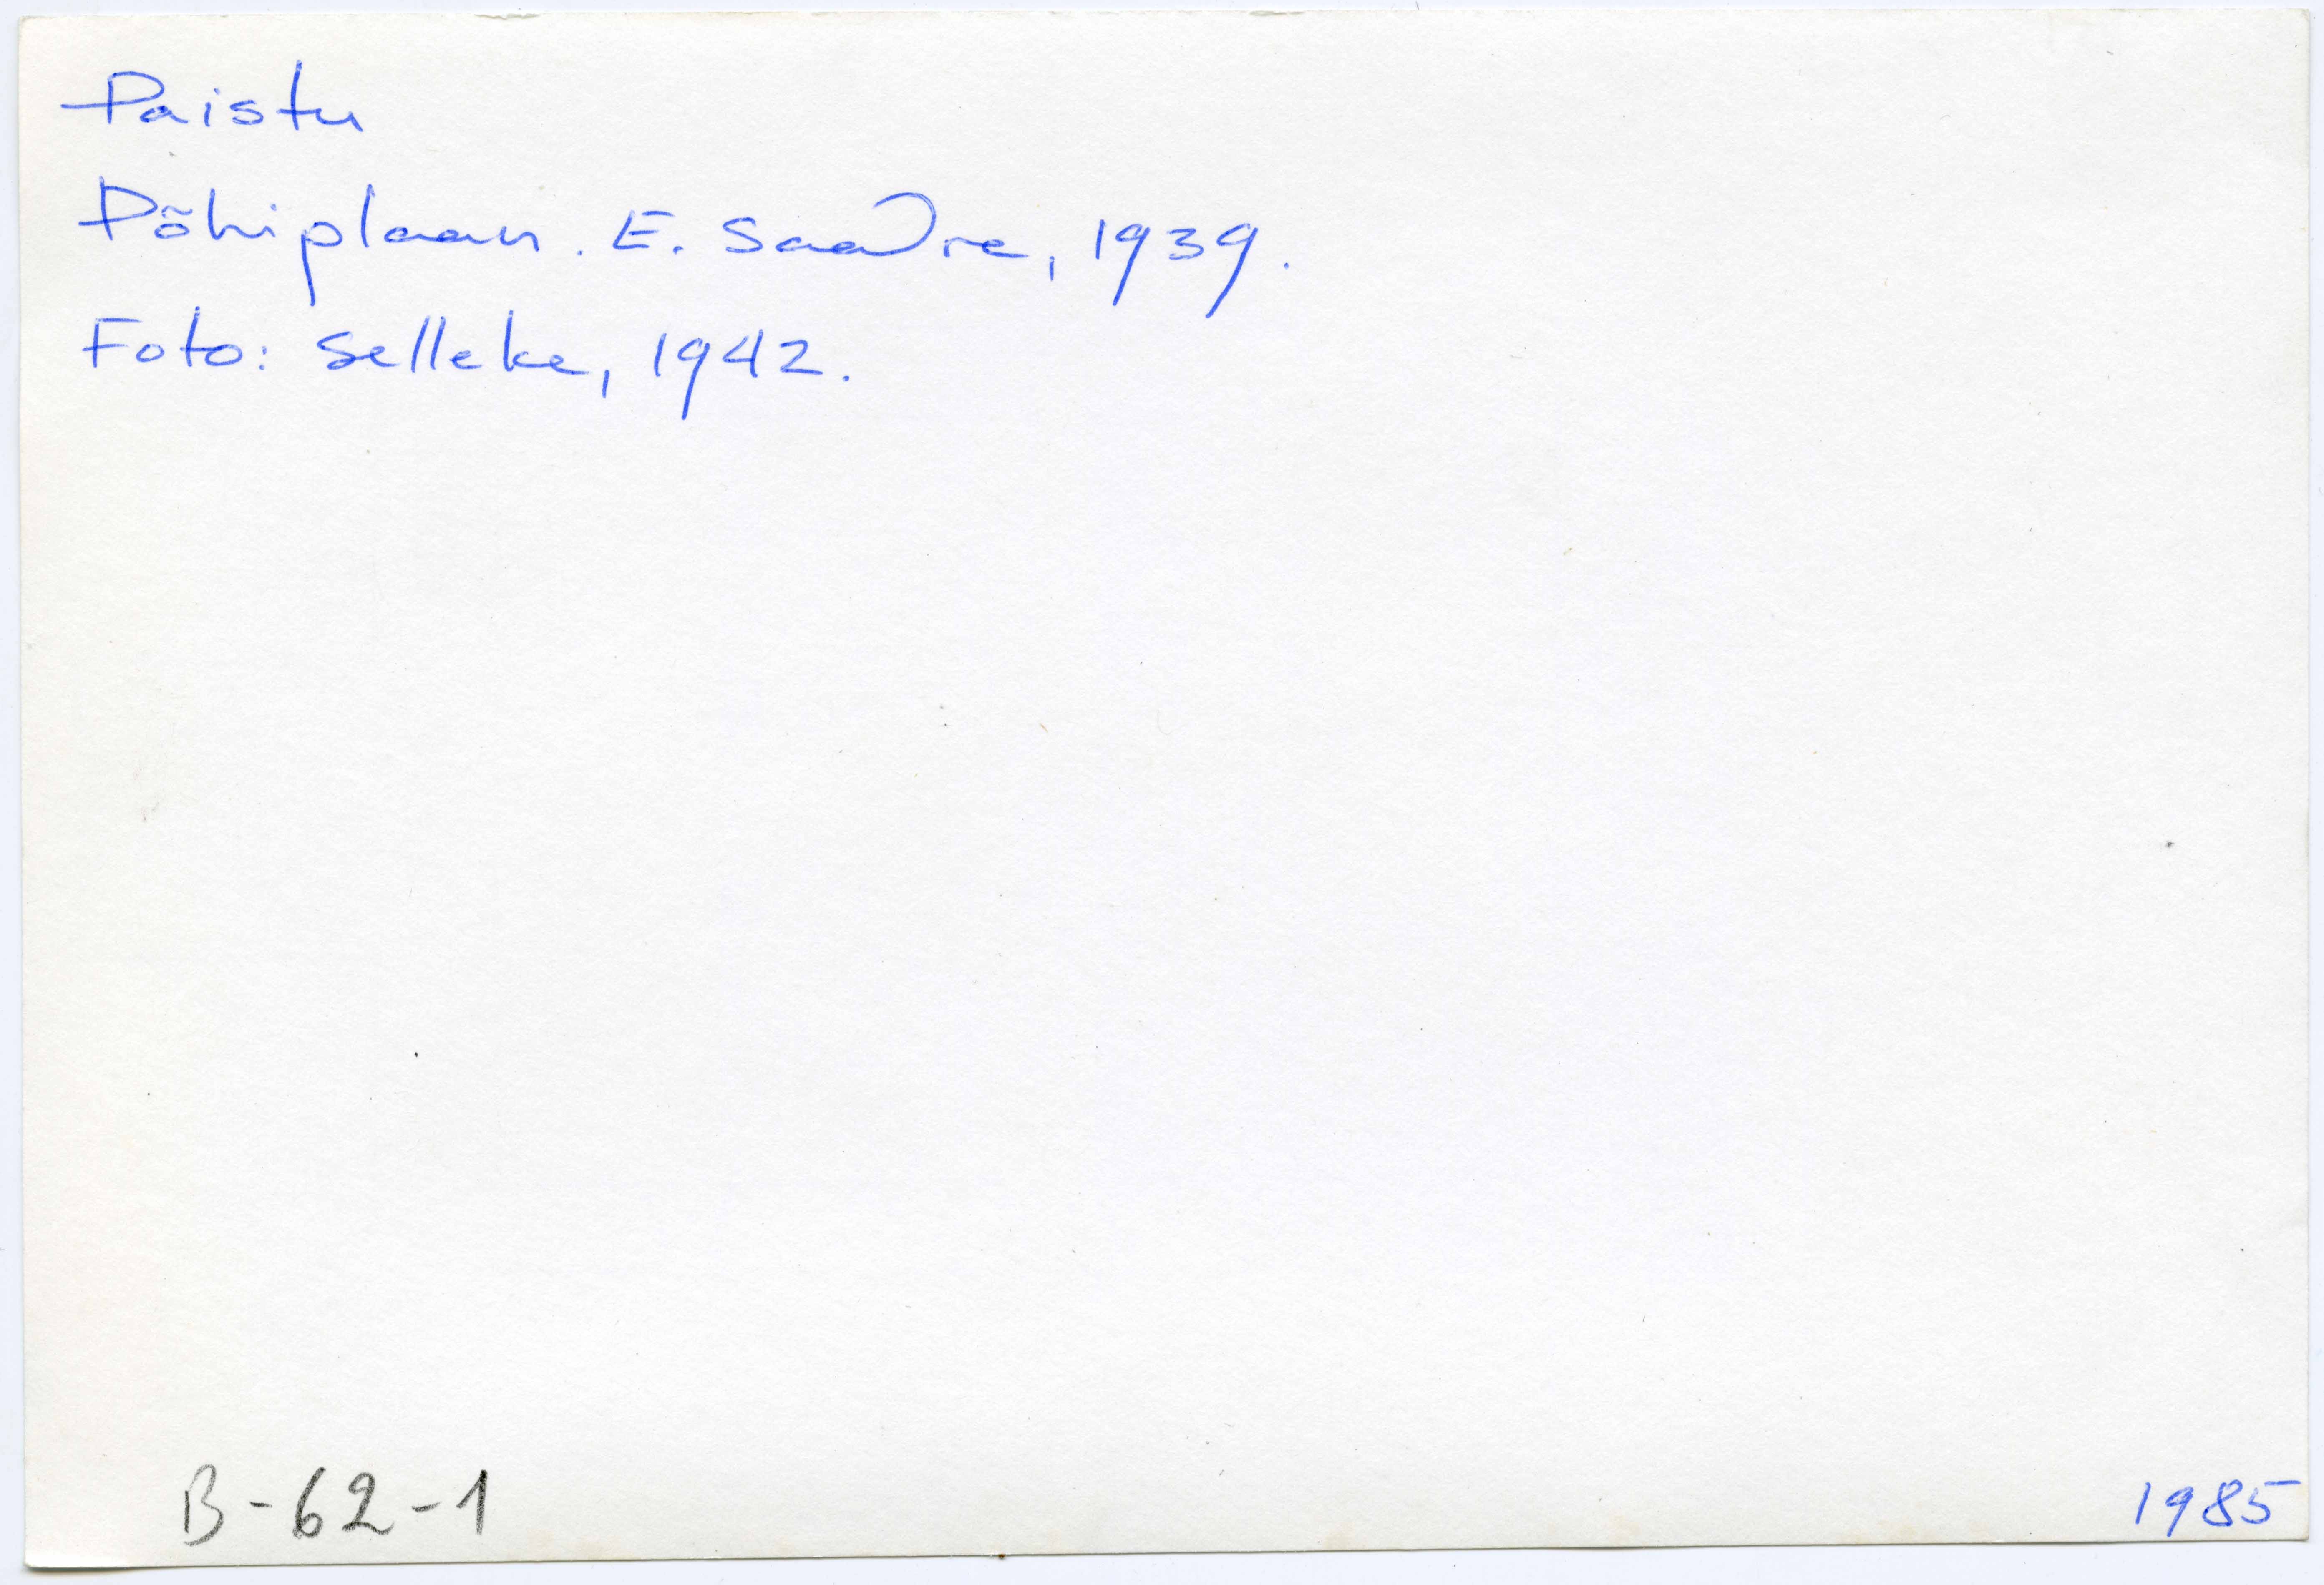 Paistu
Põhiplaan. E. Saadre, 1939.
Foto: Selleke, 1942.
B-62-1
1985